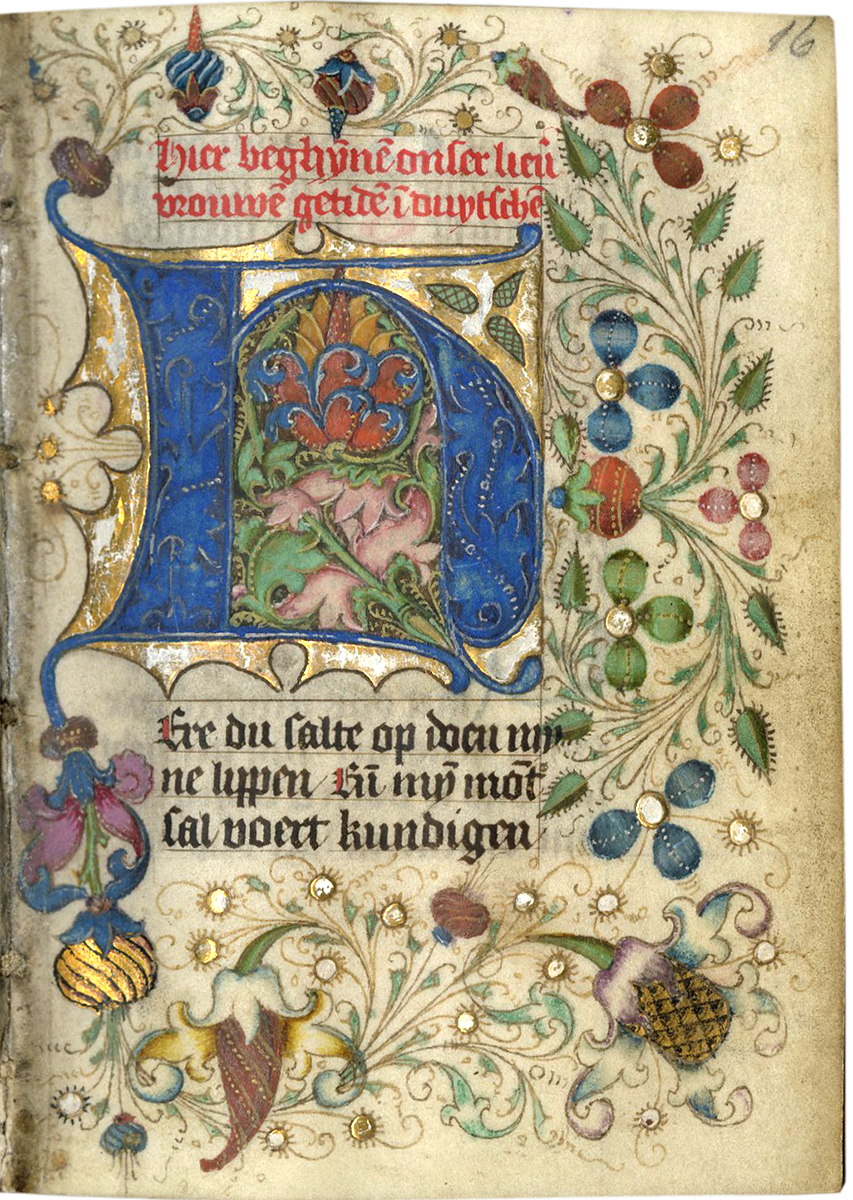 16
Hier beghȳnē onser lieū
vrouwē getidē ī duytschē
H
Ere du salte op doen my
ne lippen / Eñ mȳ mōt
sal voert kundigen